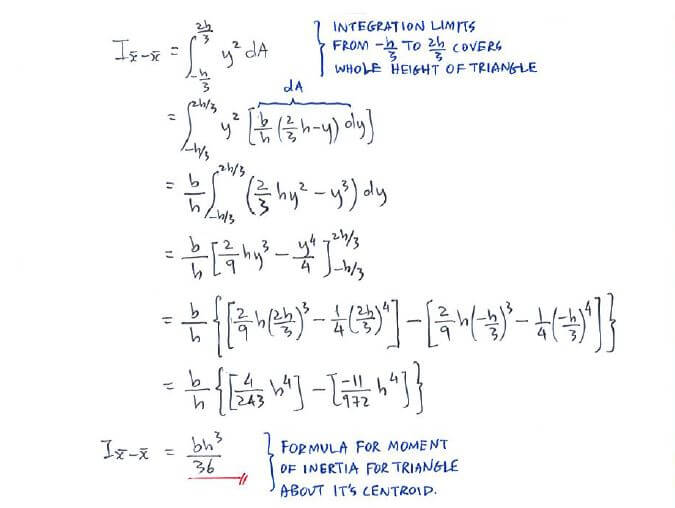 I_x̄-x̄ = ∫_{-h/3}^{2h/3} y² dA
INTEGRATION LIMITS
FROM -h/3 TO 2h/3 COVERS
WHOLE HEIGHT OF TRIANGLE
dA
= ∫_{-h/3}^{2h/3} y² [b/h (2/3 h-y) dy]
= b/h ∫_{-h/3}^{2h/3} (2/3 hy² - y³) dy
= b/h [2/9 hy³ - y⁴/4]_{-h/3}^{2h/3}
= b/h {[2/9 h(2h/3)³ - 1/4(2h/3)⁴] - [2/9 h(-h/3)³ - 1/4(-h/3)⁴]}
= b/h {[4/243 h⁴] - [-11/972 h⁴]}
I_x̄-x̄ = bh³/36
FORMULA FOR MOMENT
OF INERTIA FOR TRIANGLE
ABOUT IT'S CENTROID.